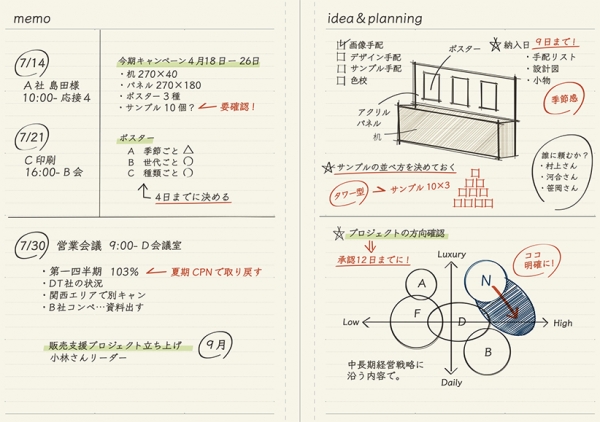 memo
7/14
A社 島田様
10:00- 応接4
今期キャンペーン4月18日ー26日
・机270×40
・パネル270×180
・ポスター3種
・サンプル10個? ← 要確認!
7/21
C印刷
16:00- B会
ポスター
A 季節ごと △
B 世代ごと ○
C 種類ごと ○
4日までに決める
7/30 営業会議 9:00- D会議室
・第一四半期 103% ← 夏期CPNで取り戻す
・DT社の状況
・関西エリアで別キャン
・B社コンペ…資料出す
販売支援プロジェクト立ち上げ 9月
小林さんリーダー
idea & planning
画像手配
デザイン手配
サンプル手配
色校
ポスター
アクリル
パネル
机
☆納入日 9日まで!
・手配リスト
・設計図
・小物
季節感
☆サンプルの並べ方を決めておく
タワー型 → サンプル10×3
誰に頼むか?
・村上さん
・河合さん
・笹岡さん
☆プロジェクトの方向確認
承認12日までに!
Luxury
ココ
明確に!
A
N
F
D
B
Low
High
Daily
中長期経営戦略に
沿う内容で。